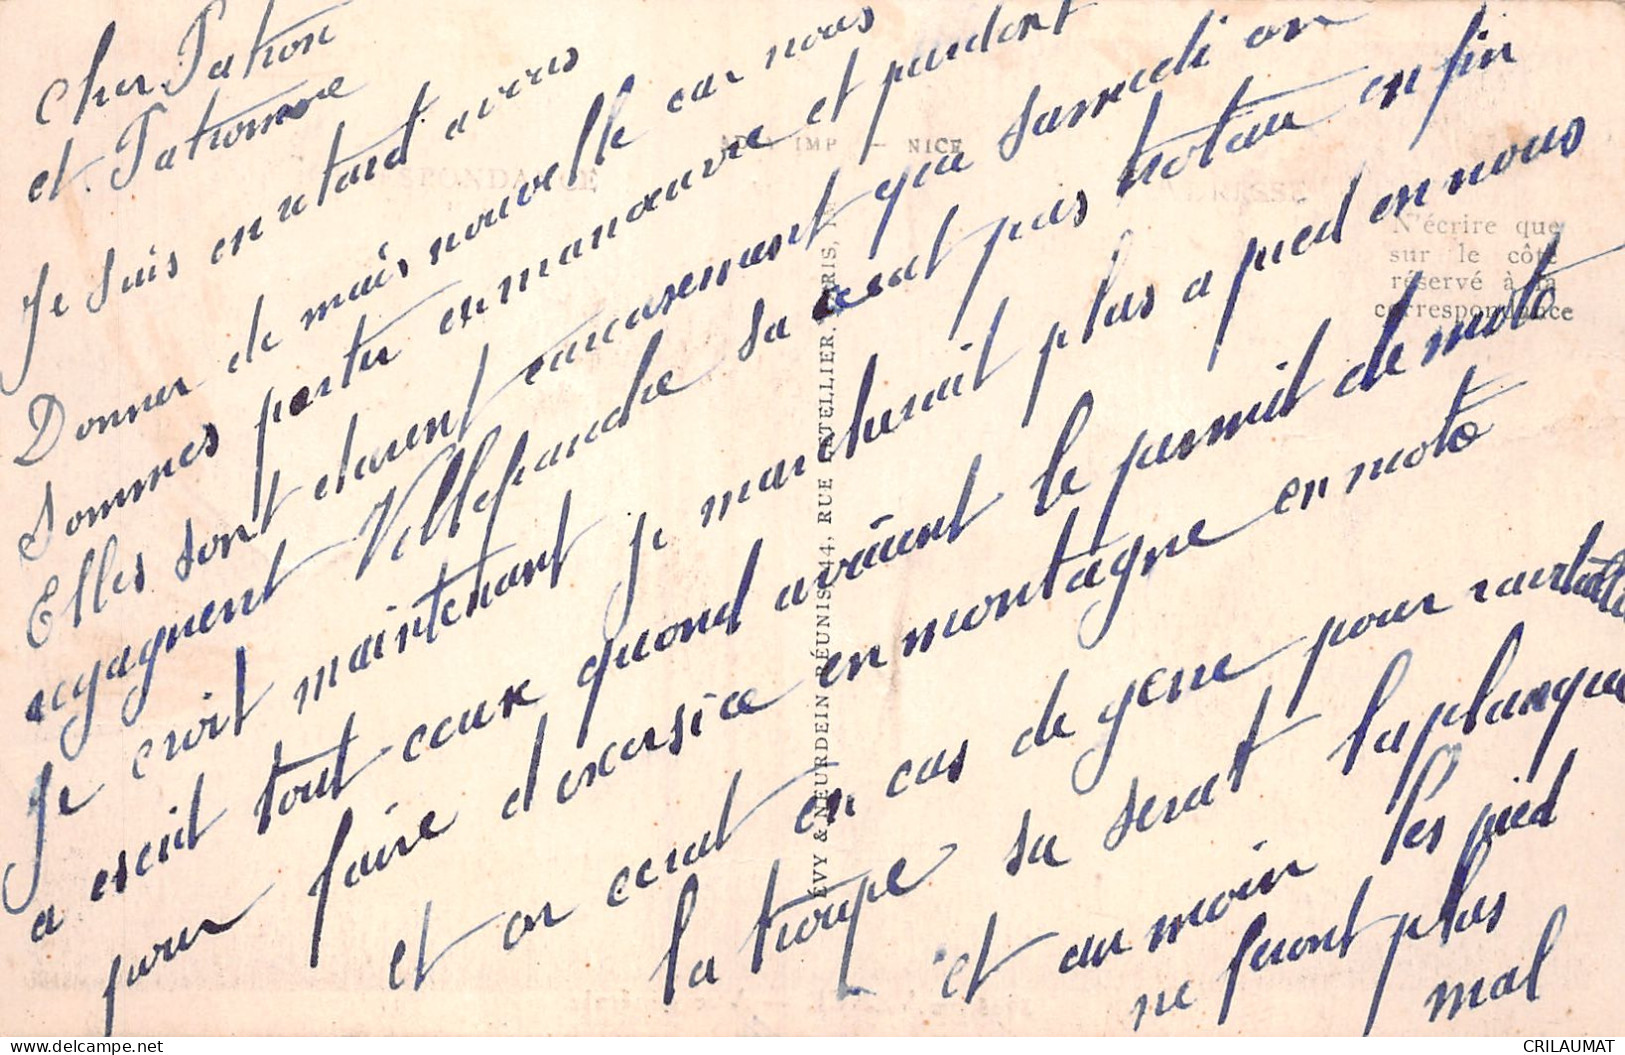 Cher Patron
et Patronne
Je suis en retard a vous
Donner de mais nouvelle car nous
Sommes partu en manœuvre et pendant
Elles sont durent eureusement que samedi on
regagnent Villefranche sa cerat pas trotau enfin
Je croit maintenant je marcherait plus a pied en nous
a escrit tout ceux quond avaient le permit de moto
pour faire d'exersice en montagne en moto
et on cerat en cas de gene pour ravitaille
la troupe sa serat la planque
et au moin les pied
ne feront plus
mal
IMP - NICE
CORRESPONDANCE
ADRESSE
N'écrire que
sur le côté
réservé à la
correspondance
LÉVY & NEURDEIN RÉUNIS, 44, RUE LETELLIER, PARIS
CRILAUMAT